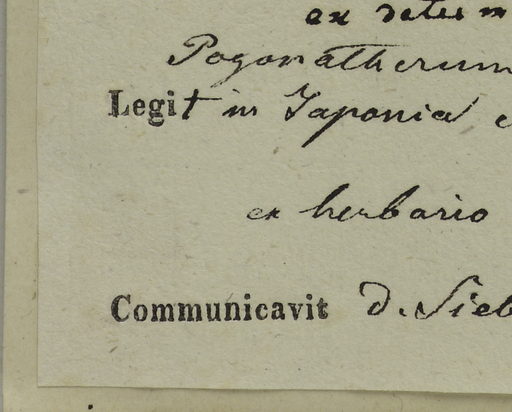 ex deter
Pogonatherum
Legit in Japonia
ex herbario
Communicavit d. Sieb